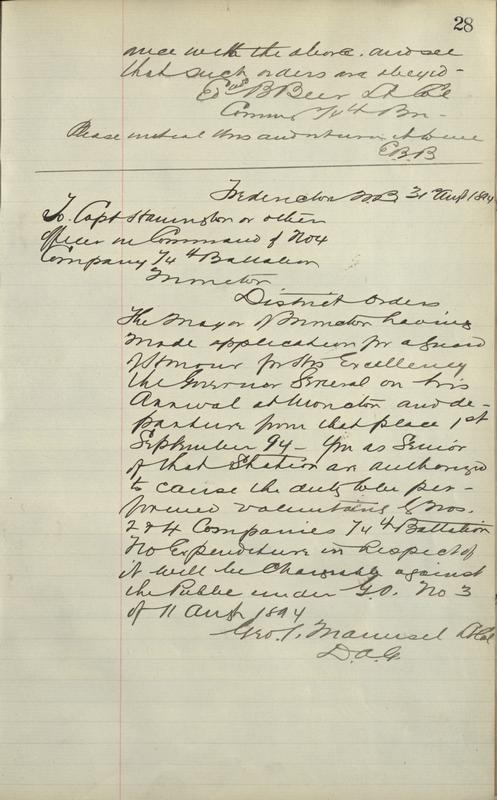 28
ance with the above. and see
that such orders are obeyed -
Edwd B Beer Lt Col
Comm 74th Bn -
Please initial this and return it to me
E.B.B
Fredericton N.B. 31st Augt 1894
To. Capt Hanington or other
officer in Command of No 4
Company 74th Battalion
Moncton
District Orders
The Mayor of Moncton having
made application for a guard
of Honour for His Excellency
the Governor General on his
Arrival at Moncton and de-
parture from that place 1st
September 94 - You as Senior
of that Station are authorized
to cause the duty to be per-
formed voluntarily by Nos.
2 & 4 Companies 74th Battalion
No Expenditure in Respect of
it will be Chargeable against
the Public under G.O. No 3
of 11 Augt 1894
Geo. J. Maunsel Lt Col
D.A.G